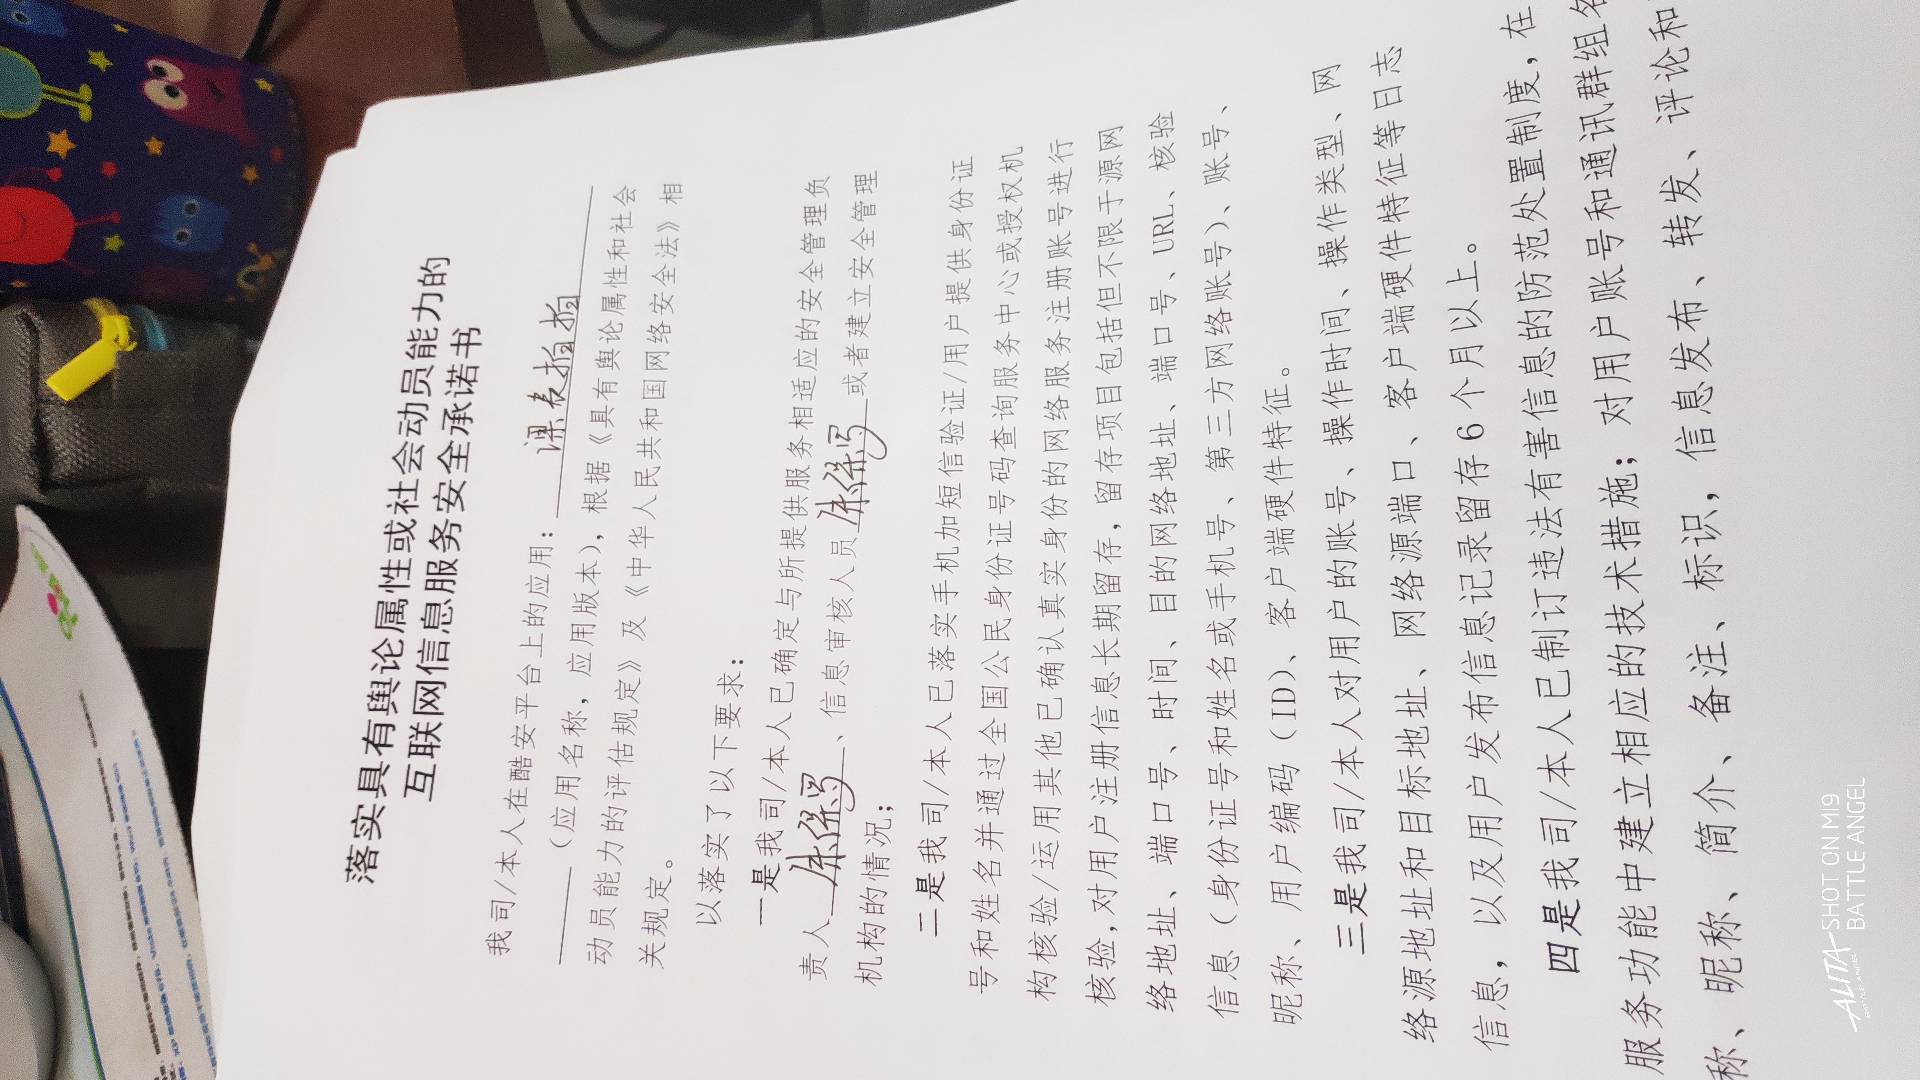 落实具有舆论属性或社会动员能力的
互联网信息服务安全承诺书
我司/本人在酷安平台上的应用：课表拍拍
（应用名称，应用版本），根据《具有舆论属性和社会
动员能力的评估规定》及《中华人民共和国网络安全法》相
关规定。
以落实了以下要求：
一是我司/本人已确定与所提供服务相适应的安全管理负
责人 保罗、信息审核人员 保罗或者建立安全管理
机构的情况；
二是我司/本人已落实手机加短信验证/用户提供身份证
号和姓名并通过全国公民身份证号码查询服务中心或授权机
构核验/运用其他已确认真实身份的网络服务注册账号进行
核验,对用户注册信息长期留存，留存项目包括但不限于源网
络地址、端口号、时间、目的网络地址、端口号、URL、核验
信息（身份证号和姓名或手机号、第三方网络账号）、账号、
昵称、用户编码（ID）、客户端硬件特征。
三是我司/本人对用户的账号、操作时间、操作类型、网
络源地址和目标地址、网络源端口、客户端硬件特征等日志
信息，以及用户发布信息记录留存6个月以上。
四是我司/本人已制订违法有害信息的防范处置制度，在
服务功能中建立相应的技术措施；对用户账号和通讯群组名
称、昵称、简介、备注、标识，信息发布、转发、评论和
ALITA SHOT ON MI9
BATTLE ANGEL BATTLE ANGEL